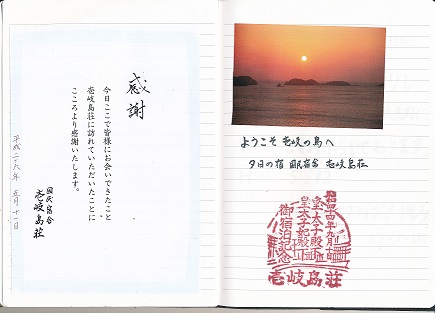 感謝
今日ここで皆様にお会いできたこと
壱岐島荘に訪れていただいたことに
こころより感謝いたします。
平成二十八年 五月十一日
国民宿舎
壱岐島荘
ようこそ 壱岐の島へ
夕日の宿 国民宿舎 壱岐島荘
昭和四十四年九月
皇太子殿下
皇太子妃殿下
御宿泊記念
壱岐島荘